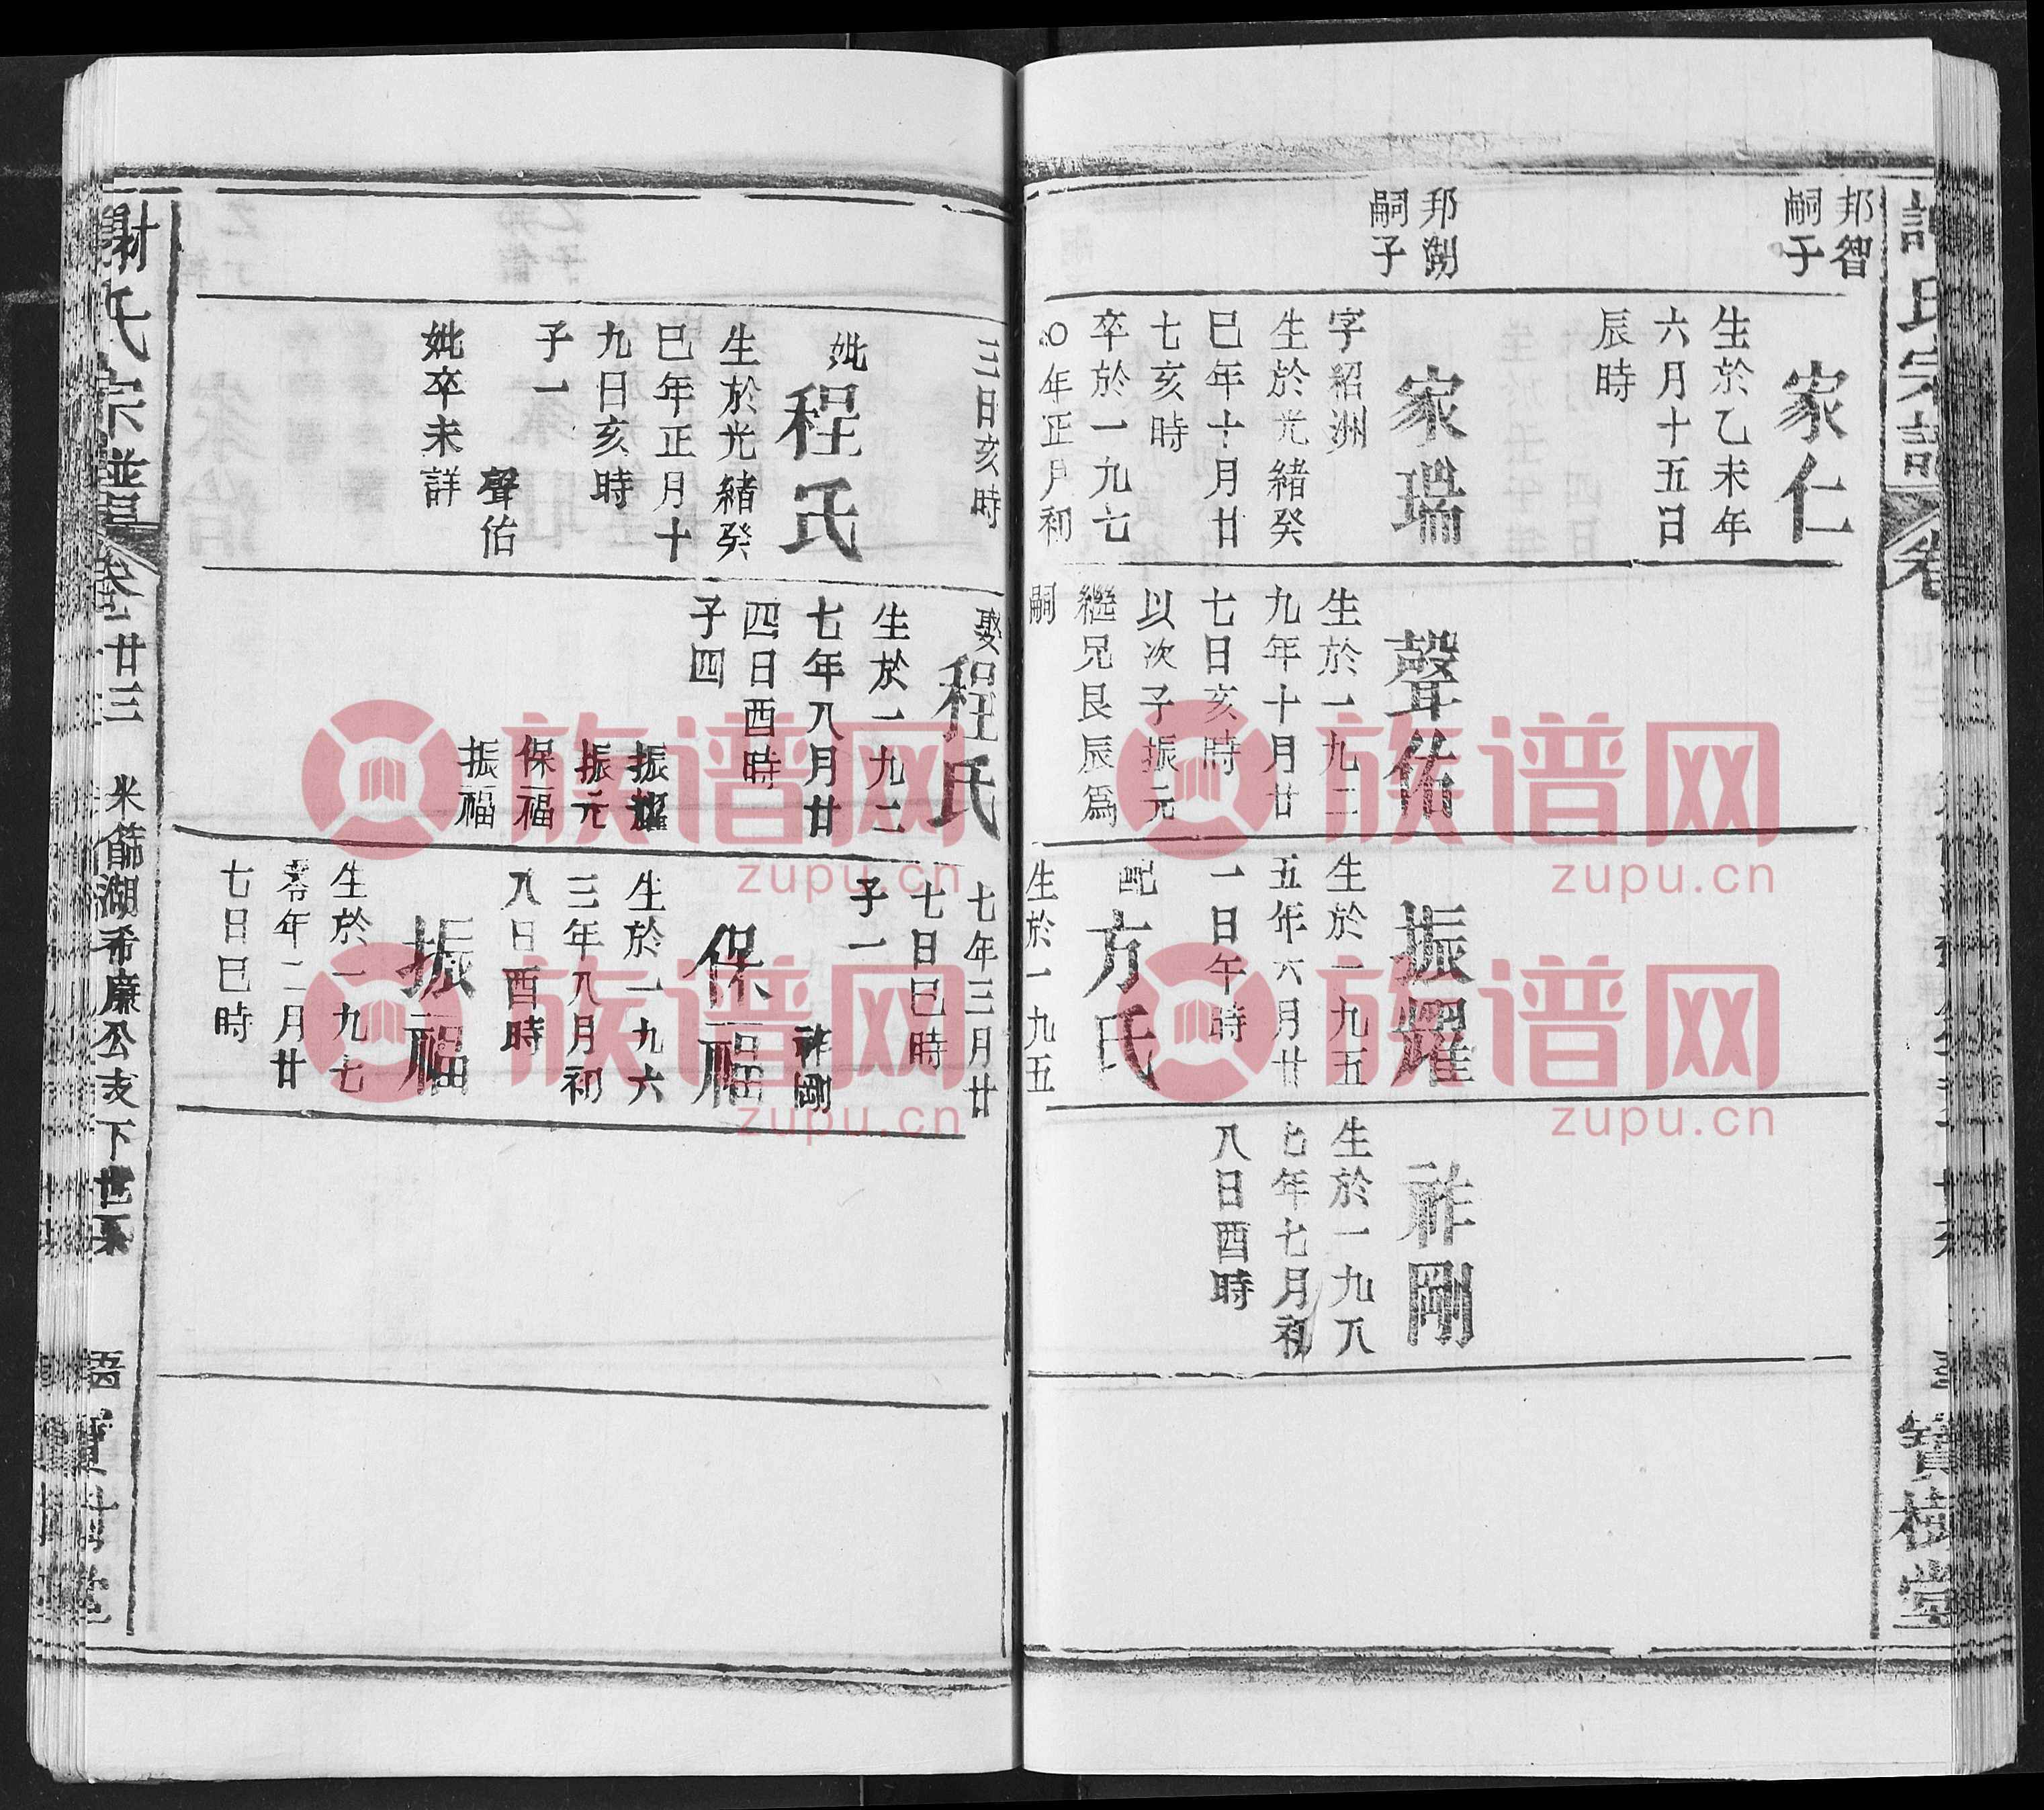 氏宗譜
卷
寶樹堂
邦智
嗣子
家仁
生於乙未年
六月十五日
辰時
邦
嗣子
家瑞
字紹洲
生於光緒癸
巳年十月廿
七亥時
卒於一九七
〇年正月初
聲佑
生於一九二
九年十月廿
七日亥時
以次子振元
繼兄艮辰爲
嗣
振耀
生於一九五
五年六月廿
一日午時
配
方氏
生於一九五
祚剛
生於一九八
七年七月初
八日酉時
三日亥時
妣
程氏
生於光緒癸
巳年正月十
九日亥時
子一
聲佑
妣卒未詳
娶
程氏
生於一九二
七年八月廿
四日酉時
子四
振耀
振元
保福
振福
七年三月廿
七日巳時
子一
祚剛
保福
生於一九六
三年八月初
八日酉時
振福
生於一九七
零年二月廿
七日巳時
謝氏宗譜
卷廿三
米篩湖希廉公支下世系
族谱网
zupu.cn
族谱网
zupu.cn
族谱网
zupu.cn
族谱网
zupu.cn